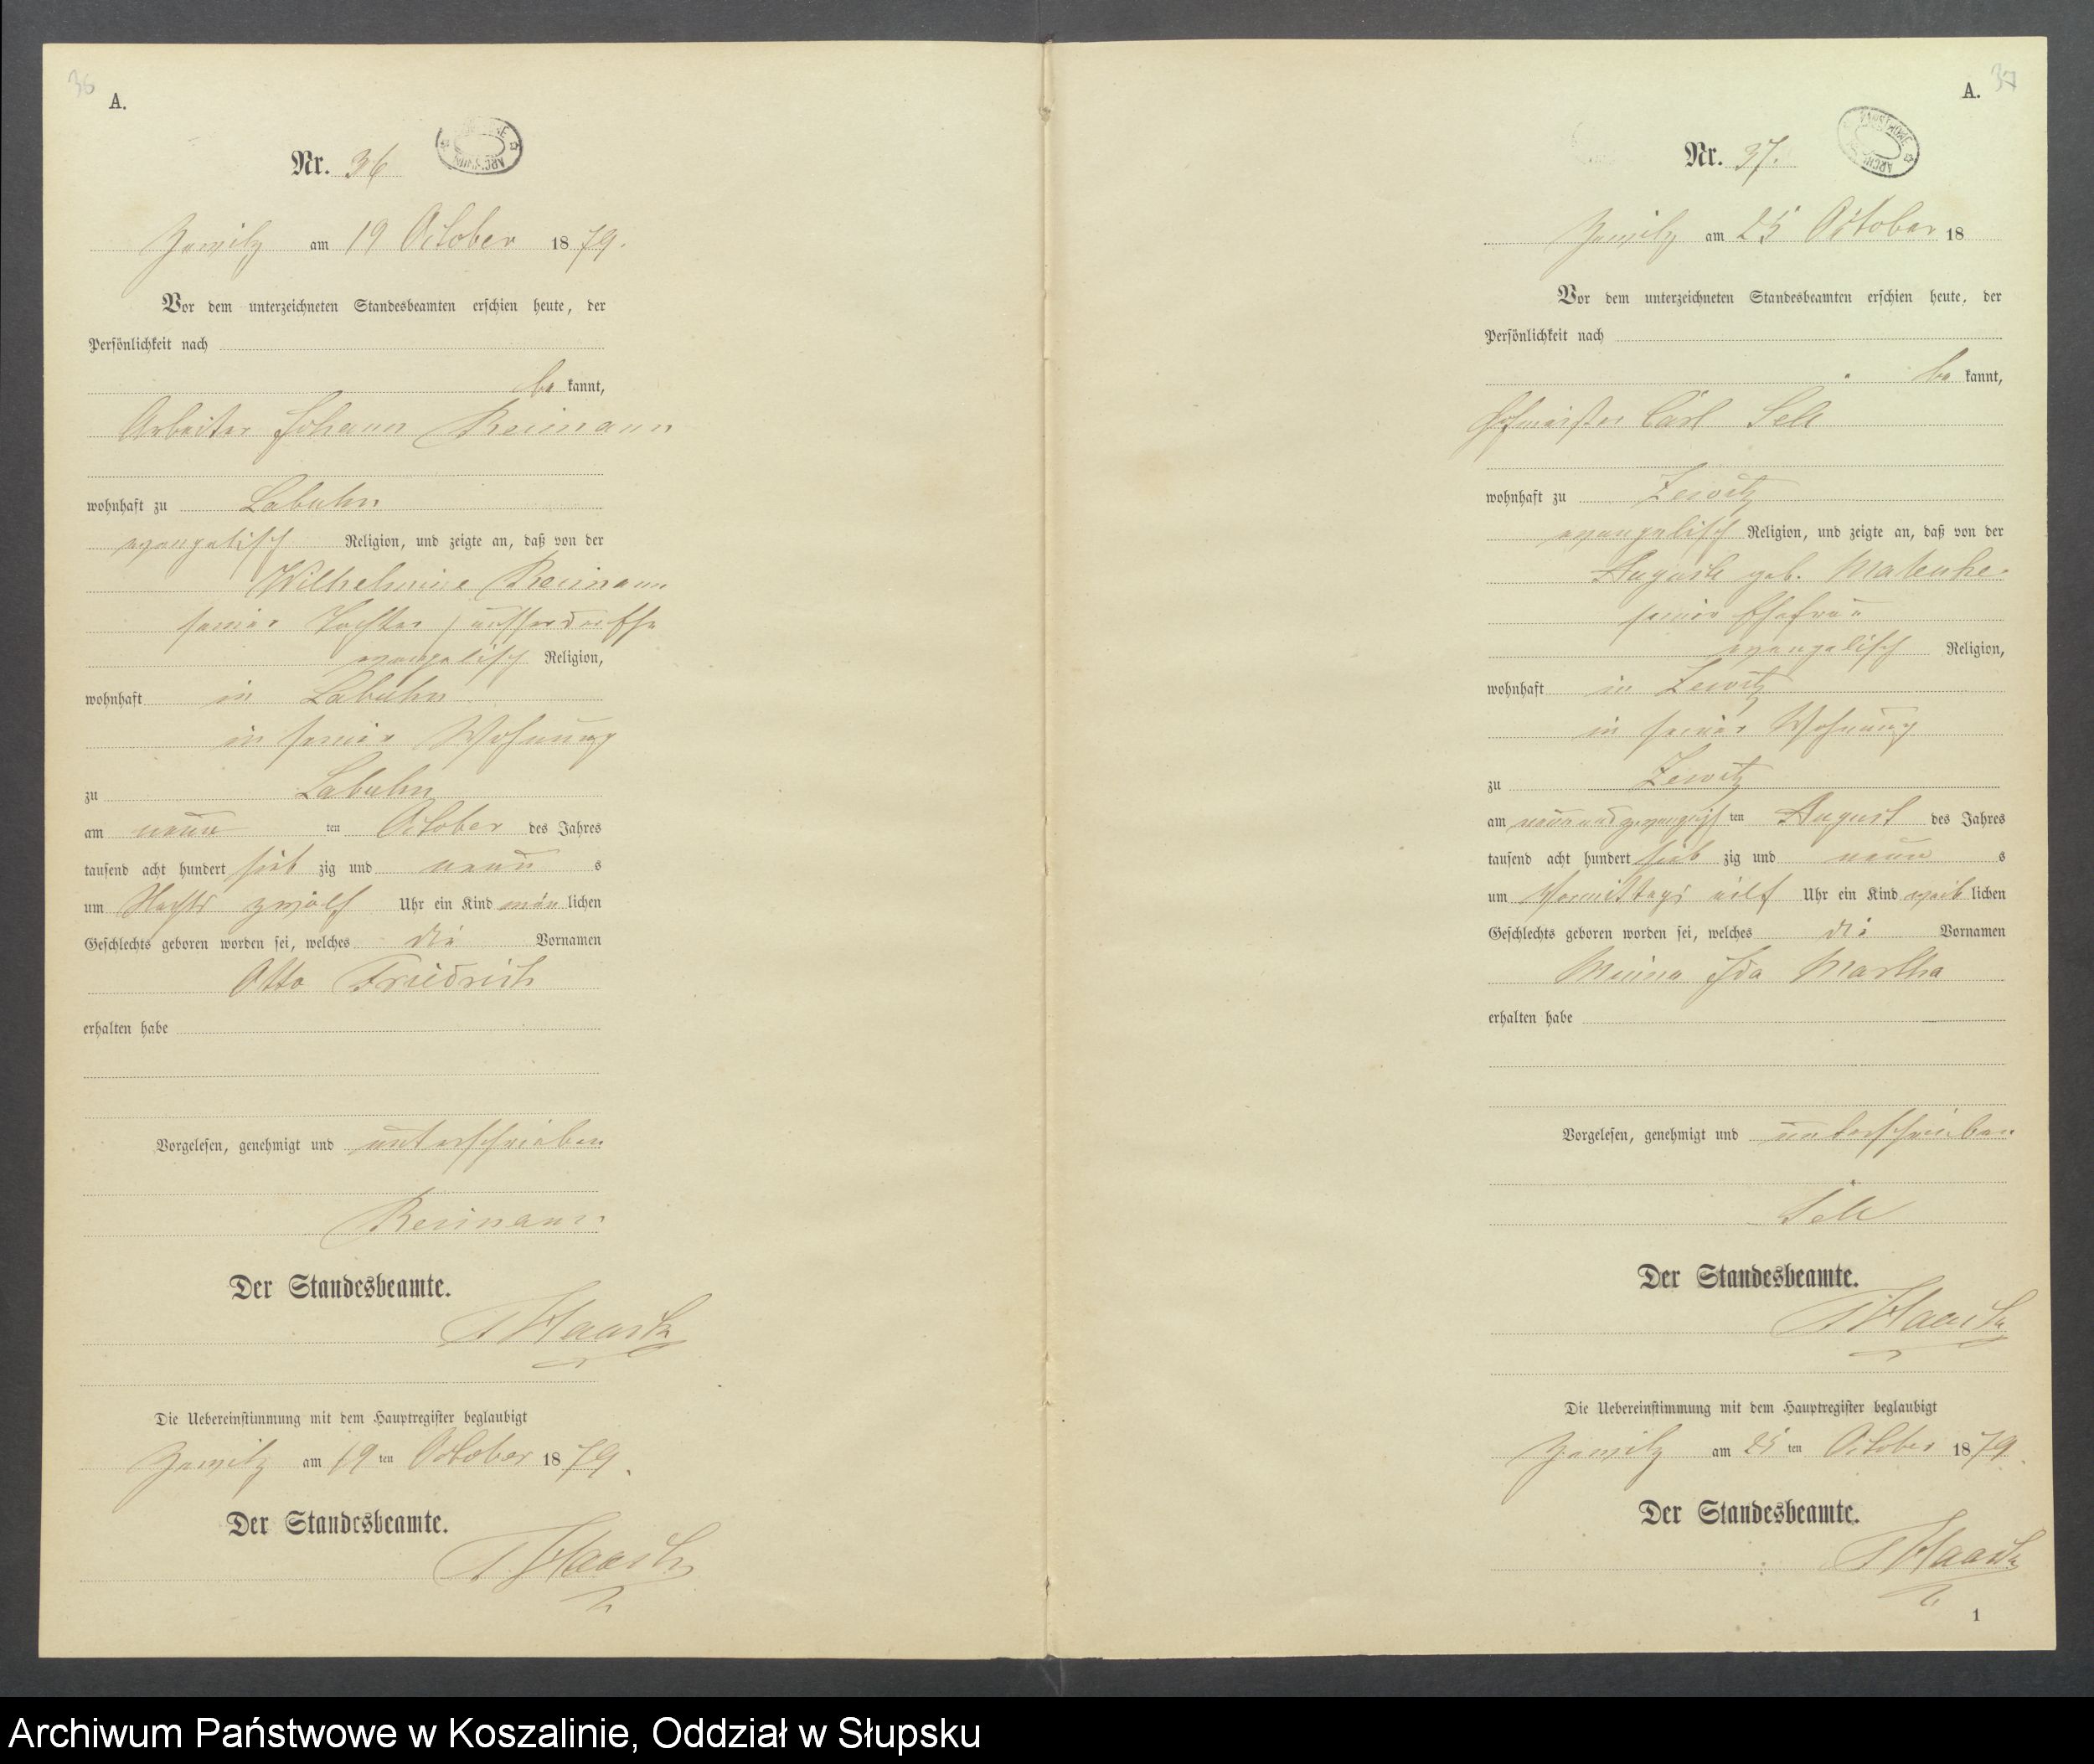 36
A.
Nr. 36
Zewitz am 19 October 1879.
Vor dem unterzeichneten Standesbeamten erschien heute, der
Persönlichkeit nach
be kannt,
Arbeiter Johann Reimann
wohnhaft zu Labuhn
evangelisch Religion, und zeigte an, daß von der
Wilhelmine Reimann
seiner Tochter, ausser der Ehe
evangelisch Religion,
wohnhaft in Labuhn
in seiner Wohnung
zu Labuhn
am neun ten October des Jahres
tausend acht hundert sieb zig und neun s
um Nachts zwölf Uhr ein Kind män lichen
Geschlechts geboren worden sei, welches die Vornamen
Otto Friedrich
erhalten habe
Vorgelesen, genehmigt und unterschrieben
Reimann
Der Standesbeamte.
Die Uebereinstimmung mit dem Hauptregister beglaubigt
Zewitz am 19 ten October 1879.
Der Standesbeamte.
37
A.
Nr. 37.
Zewitz am 25 October 18
Vor dem unterzeichneten Standesbeamten erschien heute, der
Persönlichkeit nach
be kannt,
Hofmeister Carl Sell
wohnhaft zu Zewitz
evangelisch Religion, und zeigte an, daß von der
Auguste geb.
seiner Ehefrau
evangelisch Religion,
wohnhaft in Zewitz
in seiner Wohnung
zu Zewitz
am neunundzwanzigsten August des Jahres
tausend acht hundert sieb zig und neun s
um Vormittags eilf Uhr ein Kind weib lichen
Geschlechts geboren worden sei, welches die Vornamen
Minna Ida Martha
erhalten habe
Vorgelesen, genehmigt und unterschrieben
Sell
Der Standesbeamte.
Die Uebereinstimmung mit dem Hauptregister beglaubigt
Zewitz am 25 ten October 1879.
Der Standesbeamte.
1
Archiwum Państwowe w Koszalinie, Oddział w Słupsku